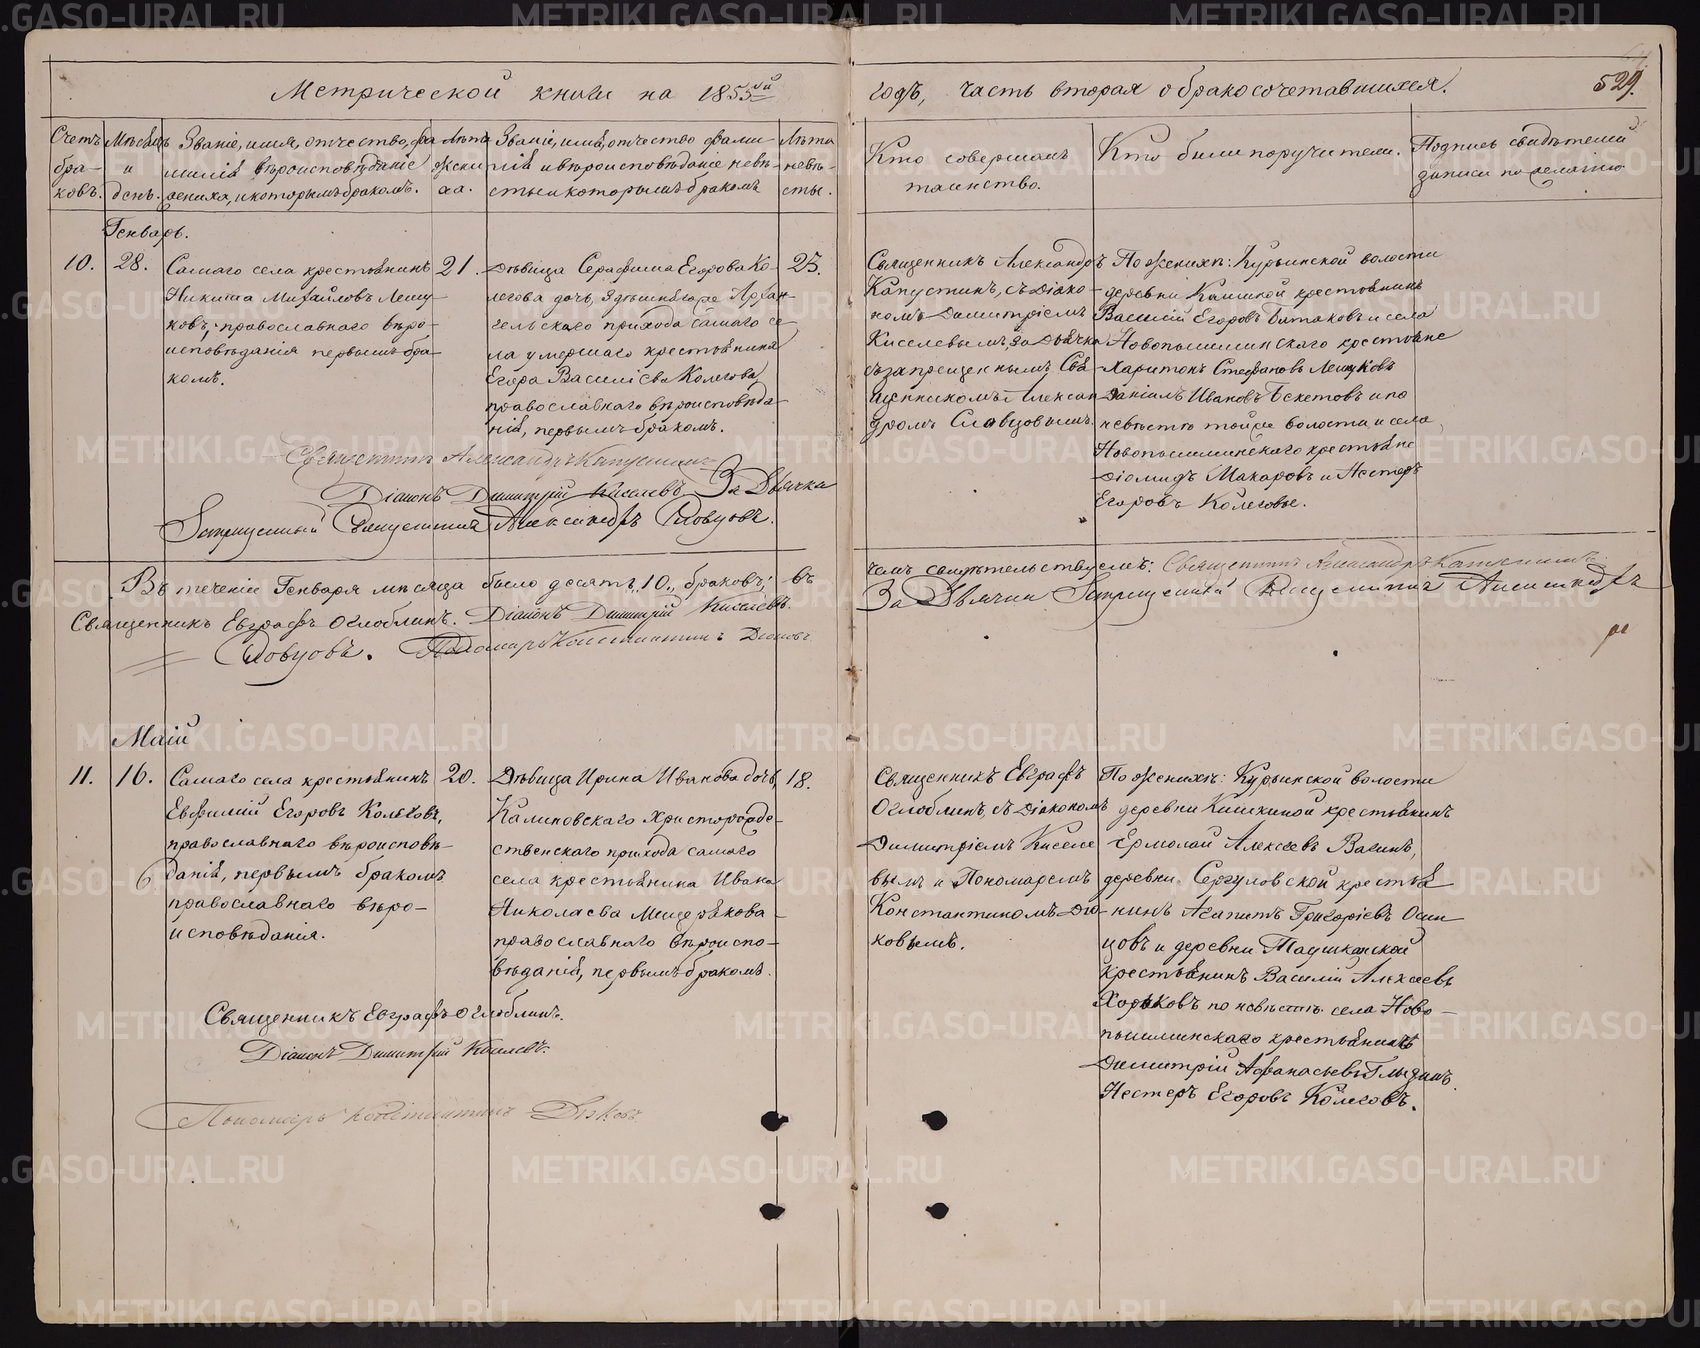 Метрической книги на 1855ый
годъ, часть вторая о бракосочетавшихся.
529.
Счетъ бра- ковъ.
Мѣсяцъ и день.
Званіе, имя, отчество, фа
милія вѣроисповѣданіе
жениха, и которымъ бракомъ.
Лѣта жени ха.
Званіе, имя, отчество фами-
лія и вѣроисповѣданіе невѣ-
сты и которымъ бракомъ
Лѣта невѣ- сты.
Кто совершалъ
таинство.
Кто были поручители.
Подпись свидѣтелей
записи по желанію
Генварь.
10.
28.
Самаго села крестьянинъ
Никита Михайловъ Лещу-
ковъ, православнаго вѣро-
исповѣданія первымъ бра-
комъ.
21.
Дѣвица Серафима Егорова Ко-
легова дочь, здѣшняго же Архан-
гельскаго прихода самаго се
ла умершаго крестьянина
Егора Василіева Колегова,
православнаго вѣроисповѣда-
нія, первымъ бракомъ.
25.
Священникъ Александръ
Капустинъ, съ Діако-
номъ Димитріемъ
Киселевымъ, за дьячка
запрещеннымъ Свя-
щенникомъ Алексан
дромъ Словцовымъ.
По женихѣ: Курьинской волости
деревни крестьянинъ
Василій Егоровъ и села
Новопышминскаго крестьяне
Харитонъ Стефановъ Лещуковъ
Даніилъ Ивановъ Бекетовъ и по
невѣстѣ той же волости, и села
Новопышминскаго крестьяне
Діомидъ Макаровъ и Нестеръ
Егоровъ Колеговы.
Священникъ Александръ Капустинъ
Діаконъ Димитрій Киселевъ За Дьячка
Запрещенный Священникъ Александръ Словцовъ.
Въ теченіи Генваря мѣсяца было десять „10„ браковъ; въ
чемъ свидѣтельствуемъ: Священникъ Александръ Капустинъ
Священникъ Евграфъ Оглоблинъ. Діаконъ Димитрій Киселевъ.
За Дьячка Запрещенный Священникъ Александръ
Словцовъ. Пономарь Константинъ Дьяковъ
Маій
11.
16.
Самаго села крестьянинъ
Евфимій Егоровъ Колеговъ,
православнаго вѣроисповѣ-
данія, первымъ бракомъ
православнаго вѣро-
исповѣданія.
20.
Дѣвица Ирина Иванова дочь,
Калиновскаго Христорожде-
ственскаго прихода самаго
села крестьянина Ивана
Николаева Мещерякова
православнаго вѣроиспо-
вѣданія, первымъ бракомъ.
18.
Священникъ Евграфъ
Оглоблинъ, съ Діакономъ
Димитріемъ Киселе
вымъ и Пономаремъ
Константиномъ Дья-
ковымъ.
По женихѣ: Курьинской волости
деревни Кашкиной крестьянинъ
Ермолай Алексѣевъ Вагинъ,
деревни Сергуловской крестья
нинъ Агапитъ Григорьевъ Осин
цовъ и деревни Таушканской
крестьянинъ Василій Алексѣевъ
Хорьковъ по невѣстѣ: села Ново-
пышминскаго крестьянинъ
Димитрій Афанасьевъ Глызинъ.
Нестеръ Егоровъ Колеговъ.
Священникъ Евграфъ Оглоблинъ.
Діаконъ Димитрій Киселевъ.
Пономарь Константинъ Дьяковъ.
METRIKI.GASO-URAL.RU